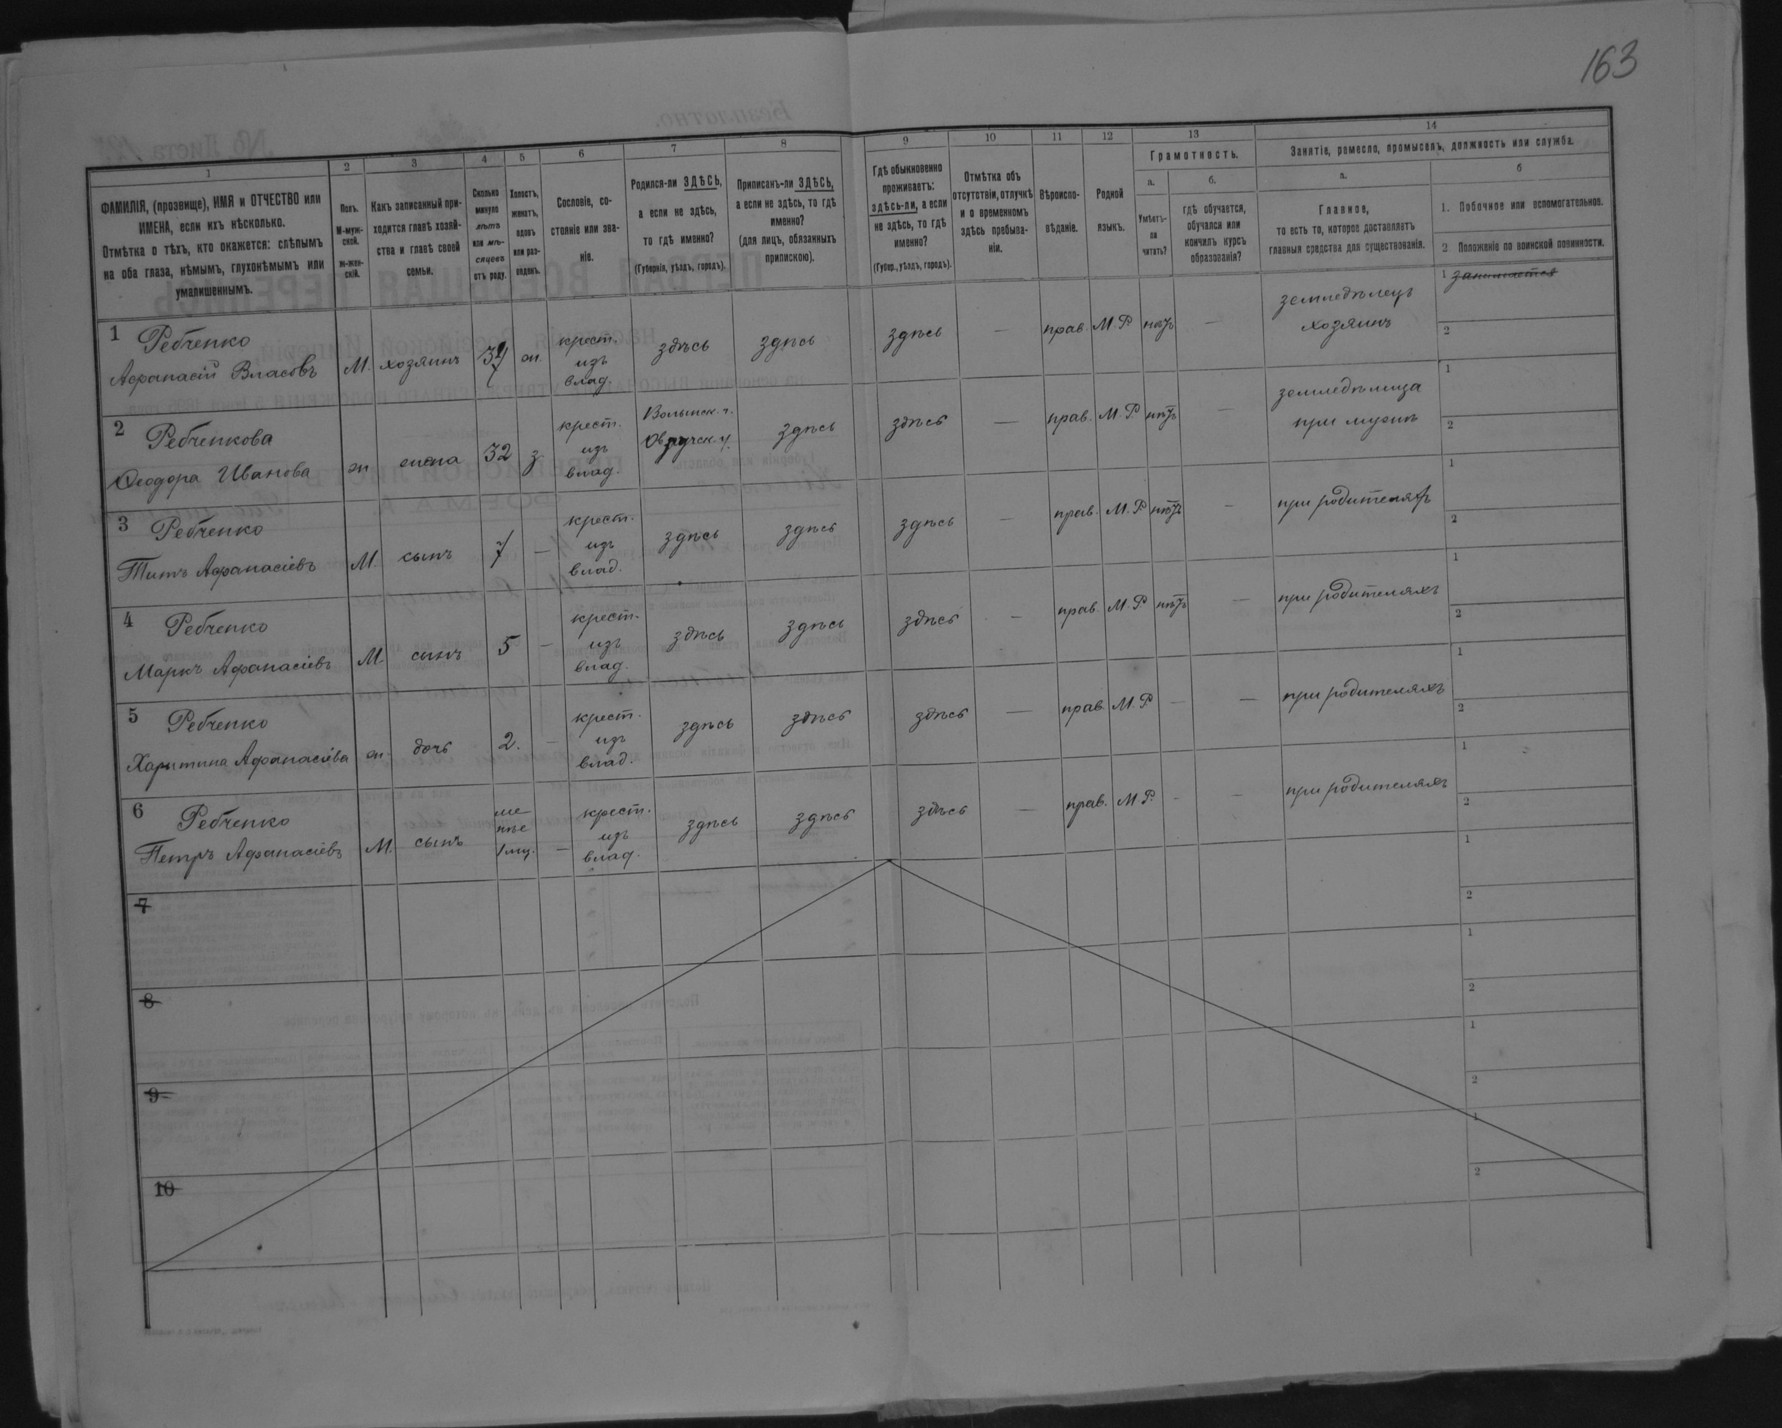 163
1 2 3 4 5 6 7 8 9 10 11 12 13 14
ФАМИЛІЯ, (прозвище), ИМЯ и ОТЧЕСТВО или
ИМЕНА, если ихъ нѣсколько.
Отмѣтка о тѣхъ, кто окажется: слѣпымъ
на оба глаза, нѣмымъ, глухонѣмымъ или
умалишеннымъ.
Полъ.
М-муж-
ской.
ж-жен-
скій.
Какъ записанный при-
ходится главѣ хозяй-
ства и главѣ своей
семьи.
Сколько
минуло
лѣтъ
или мѣ-
сяцевъ
отъ роду.
Холостъ,
женатъ,
вдовъ
или раз-
веденъ.
Сословіе, со-
стояніе или зва-
ніе.
Родился-ли ЗДѢСЬ,
а если не здѣсь,
то гдѣ именно?
(Губернія, уѣздъ, городъ).
Приписанъ-ли ЗДѢСЬ,
а если не здѣсь, то гдѣ
именно?
(для лицъ, обязанныхъ
припискою).
Гдѣ обыкновенно
проживаетъ:
здѣсь-ли, а если
не здѣсь, то гдѣ
именно?
(Губер., уѣздъ, городъ).
Отмѣтка объ
отсутствіи, отлучкѣ
и о временномъ
здѣсь пребыва-
ніи.
Вѣроиспо-
вѣданіе.
Родной
языкъ.
Грамотность.
а.
Умѣетъ-
ли
читать?
б.
гдѣ обучается,
обучался или
кончилъ курсъ
образованія?
Занятіе, ремесло, промыселъ, должность или служба.
а.
Главное,
то есть то, которое доставляетъ
главныя средства для существованія.
б
1. Побочное или вспомогательное.
2 Положеніе по воинской повинности.
1 Ребченко
Афанасій Власовъ
М. хозяинъ 37 ж. крест.
изъ
влад. здѣсь здѣсь здѣсь — прав. М. Р. нѣтъ — земледѣлецъ
хозяинъ
1 занимается
2
2 Ребченкова
Ѳеодора Иванова
ж жена 32 з. крест.
изъ
влад. Волынск. г.
Овручск. у. здѣсь здѣсь — прав. М. Р нѣтъ — земледѣлица
при мужѣ
1
2
3 Ребченко
Титъ Афанасіевъ
М. сынъ 7 — крест.
изъ
влад. здѣсь здѣсь здѣсь — прав. М. Р нѣтъ — при родителяхъ
1
2
4 Ребченко
Маркъ Афанасіевъ
М. сынъ 5 — крест.
изъ
влад. здѣсь здѣсь здѣсь — прав. М. Р нѣтъ — при родителяхъ
1
2
5 Ребченко
Харитина Афанасіева
ж. дочь 2. — крест.
изъ
влад. здѣсь здѣсь здѣсь — прав. М. Р. — — при родителяхъ
1
2
6 Ребченко
Петръ Афанасіевъ
М. сынъ ме
нѣе
1 мц. — крест.
изъ
влад. здѣсь здѣсь здѣсь — прав. М. Р. — — при родителяхъ
1
2
7
1
2
8
1
2
9
1
2
10
1
2